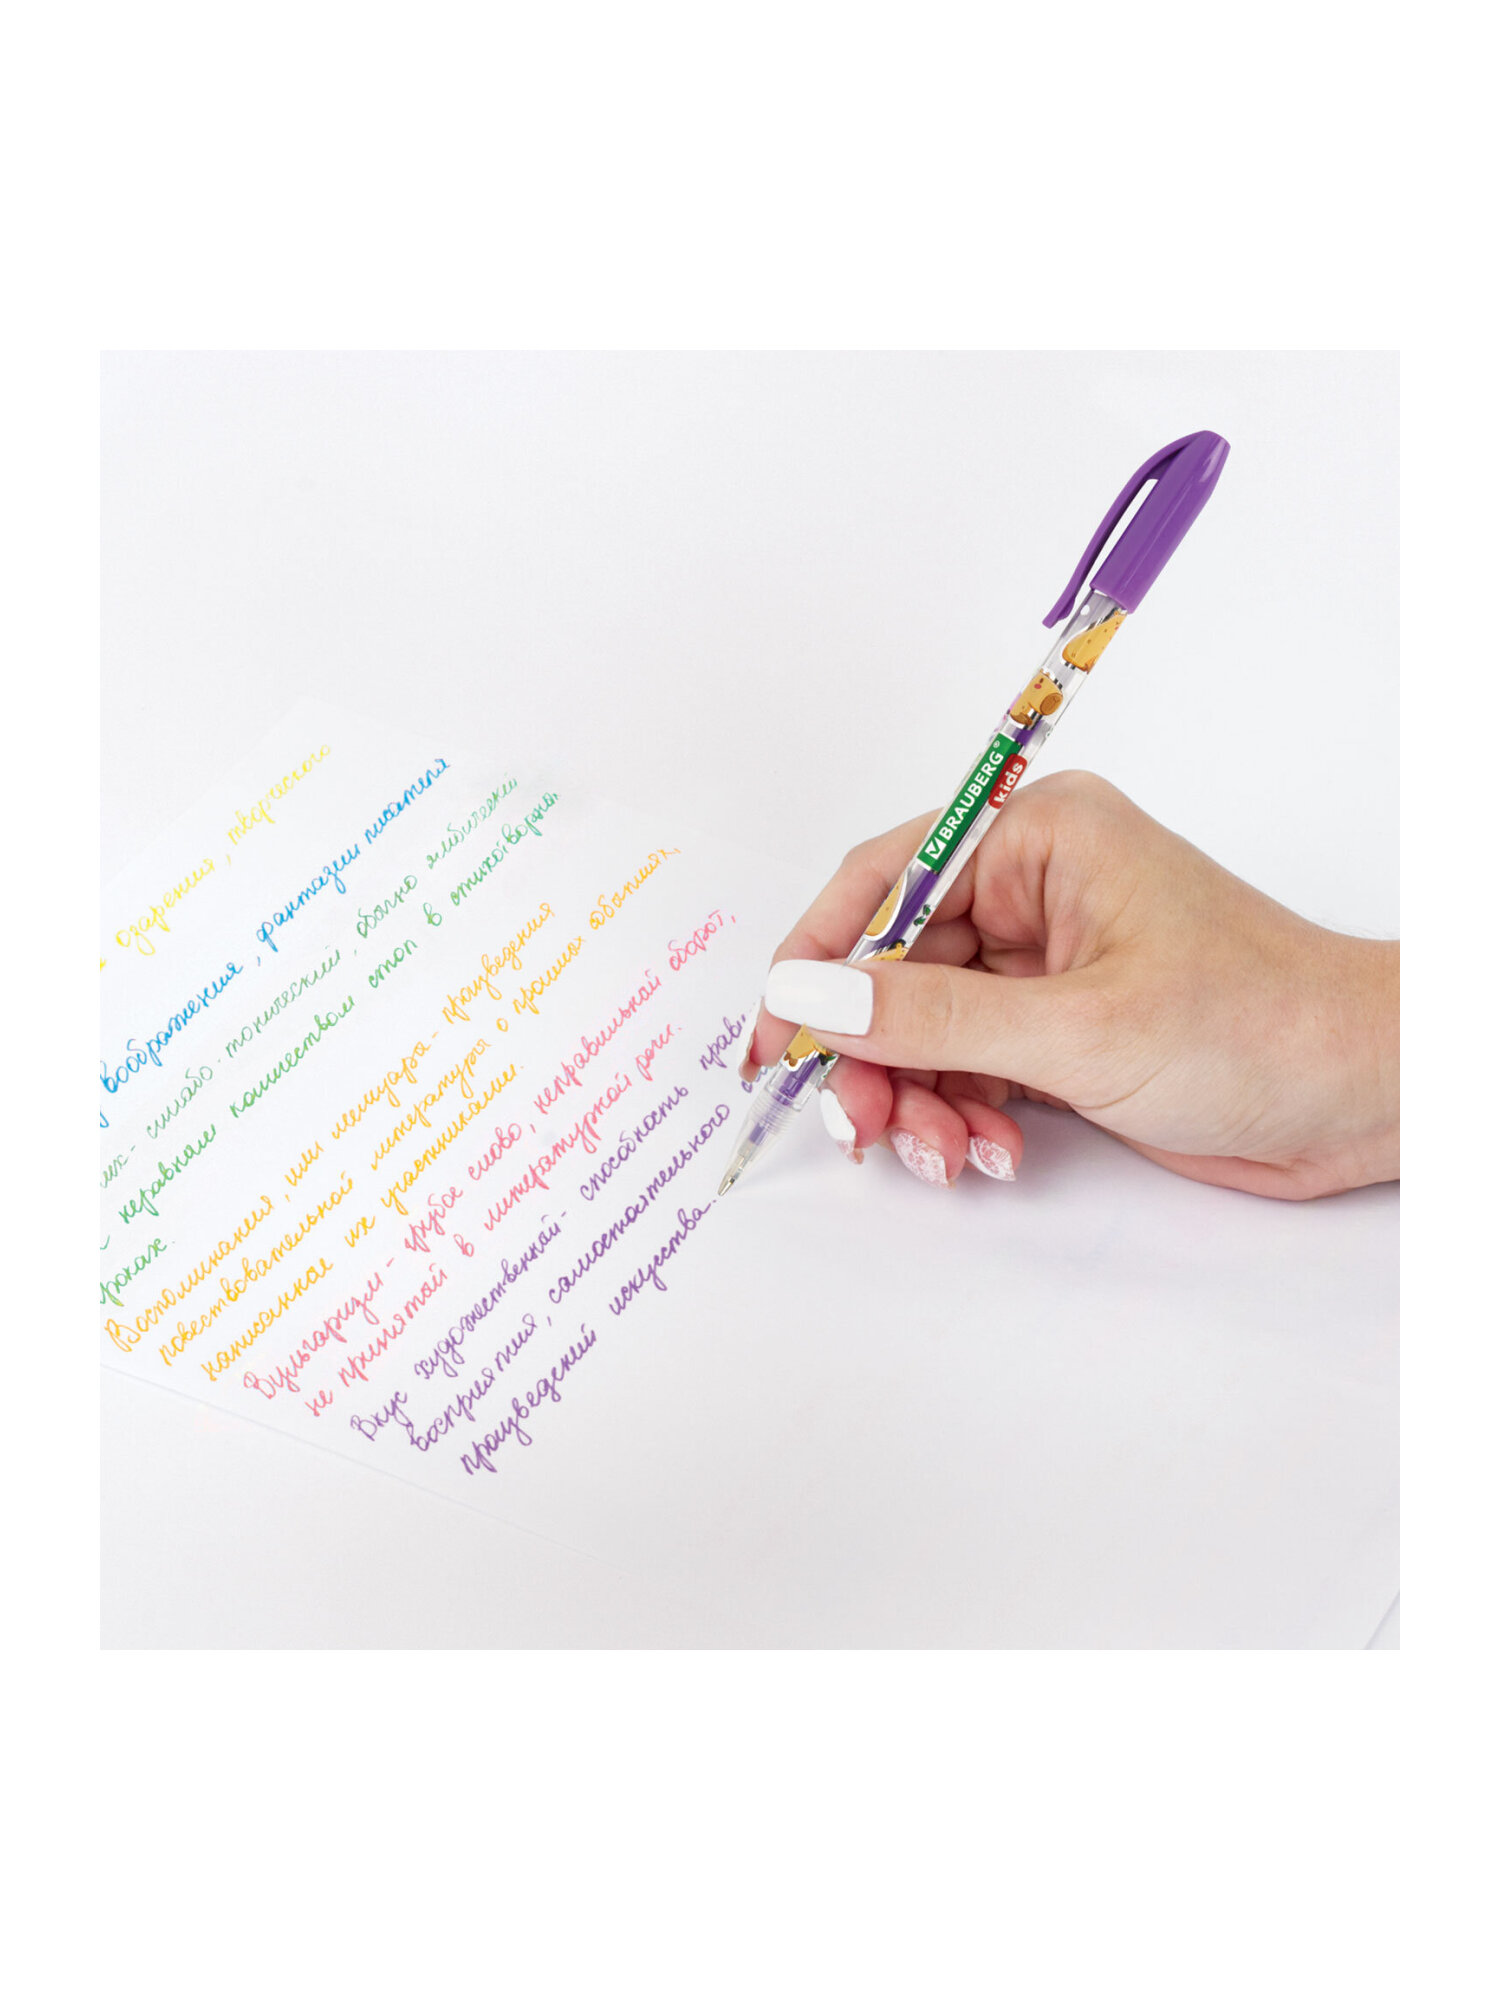 озарения, творческого
воображения, фантазии писателя
их - силлабо-тонический, обычно ямбический
с неравным количеством стоп в стихотворных
строках.
Воспоминания, или мемуары - произведения
повествовательной литературы о прошлых событиях,
написанное их участниками.
Вульгаризм - грубое слово, неправильный оборот,
не принятый в литературной речи.
Вкус художественный - способность прави
восприятия, самостоятельного
произведений искусства.
BRAUBERG®
kids